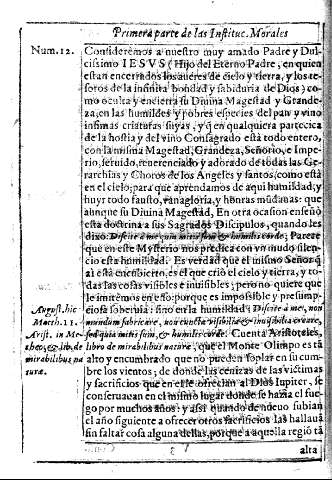 Primera parte de las Instituc. Morales
Num. 12.
Consideremos a nuestro muy amado Padre y Dul-
cissimo IESVS (Hijo del Eterno Padre, en quien
estan encerrados los aueres de cielo y tierra, y los te-
soros de la infinita bondad y sabiduria de Dios) co-
mo oculta y encierra su Diuina Magestad y Grande-
za, en las humildes y pobres especies del pan y vino
infimas criaturas suyas, y q̃ en qualquiera partecica
de la hostia y del vino Consagrado està todo entero,
con la misma Magestad, Grandeza, Señorio, e Impe-
rio, seruido, reuerenciado y adorado de todas las Ge-
rarchias y Choros de los Angeles y santos, como està
en el cielo, para que aprendamos de aqui humildad, y
huyr todo fausto, vanagloria, y honras mũdanas: que
aunque su Diuina Magestad, En otra ocasion enseñò
esta doctrina a sus Sagrados Discipulos, quando les
dixo. Discite à me, quia mitis sum & humilis corde; Parece
que en este Mysterio nos predica con vn mudo silen-
cio esta humildad. Es verdad que el mismo Señor q̃
aì està encubierto, es el que criò el cielo y tierra, y to-
das las cosas visibles e inuisibles; pero no quiere que
le imitemos en eso, porque es impossible y presump-
August. hic
ciosa soberuia: sino en la humildad: Discite à me, non
Matth. 11.
mundum fabricare, non cuncta visibilia & inuisibilia creare,
Arist. in Me-
sed quia mitis sum, & humilis corde. Cuenta Aristoteles,
theo, & lib. de
libro de mirabilibus naturæ, que el Monte Olimpo està tan
mirabilibus na
alto y encumbrado que no pueden soplar en su cum-
turæ.
bre los vientos; de donde las cenizas de las victimas
y sacrificios que en el se ofrecian al Dios Iupiter, se
conseruauan en el mismo lugar donde se hazia el fue-
go por muchos años: y assi quando de nueuo subian
el año siguiente a ofrecer otros sacrificios las hallauã
sin faltar cosa alguna dellas, porque a aquella regiõ tã
alta